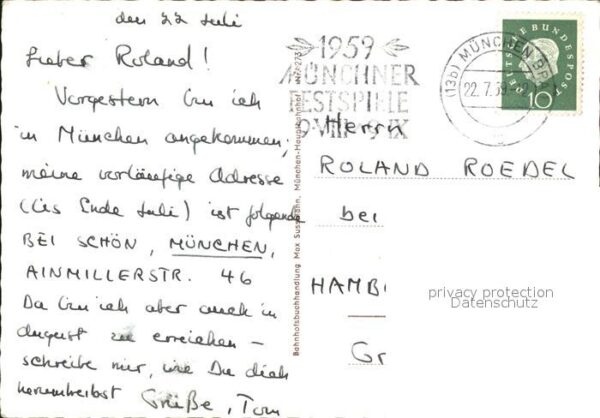 den 22 Juli
Lieber Roland!
Vorgestern bin ich
in München angekommen;
meine vorläufige Adresse
(bis Ende Juli) ist folgende
BEI SCHÖN, MÜNCHEN,
AINMILLERSTR. 46
Da bin ich aber auch in
August zu erreichen –
schreibe mir, wie Du dich
herumtreibst Grüße, Tom
Bahnhofsbuchhandlung Max Sussmann, München-Hauptbahnhof
1959
MÜNCHNER
FESTSPIELE
9.VIII-9.IX
(13b) MÜNCHEN BP
22.7.59
DEUTSCHE BUNDESPOST
10
Herrn
ROLAND ROEDEL
bei
HAMB
Gr
privacy protection
Datenschutz